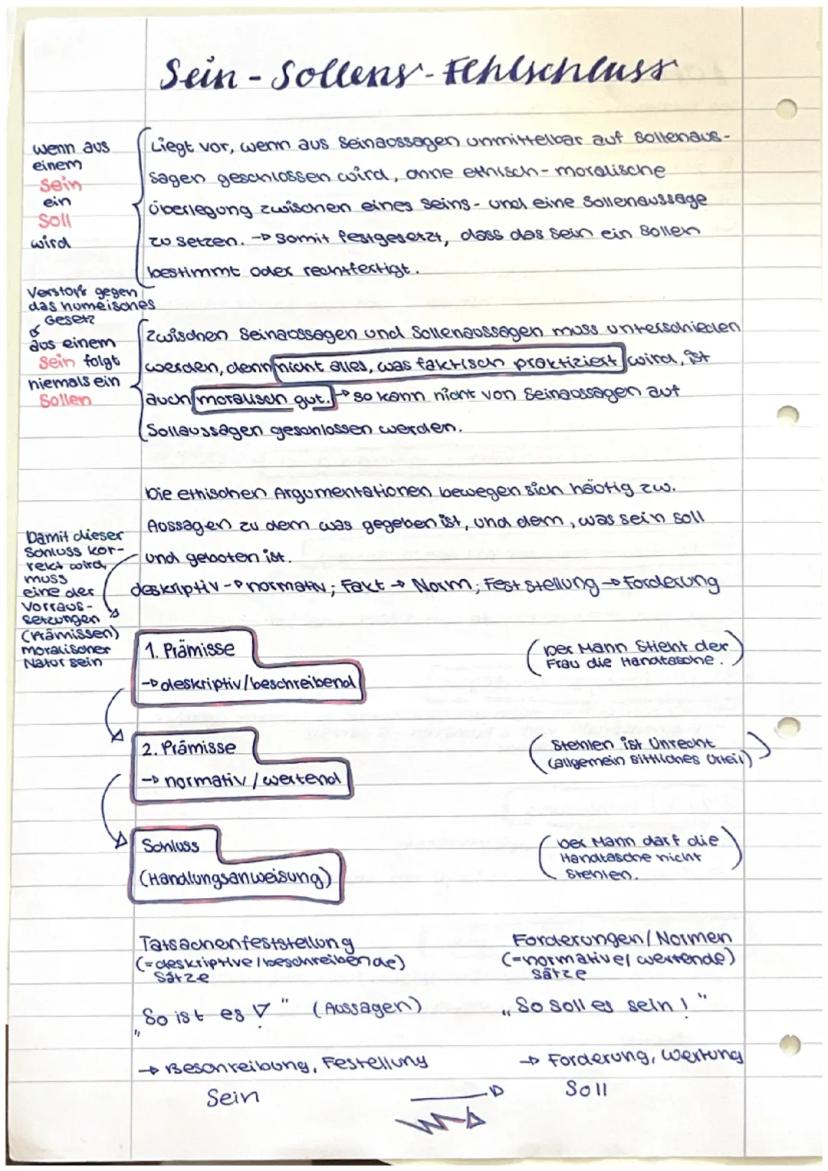 Sein - Sollens - Fehlschluss
wenn aus
einem
Sein
ein
Soll
wird
Liegt vor, wenn aus Seinaussagen unmittelbar auf Sollenaus-
sagen geschlossen wird, ohne ethisch-moralische
Überlegung zwischen eines Seins- und eine Sollenaussage
zu setzen. → Somit festgesetzt, dass das Sein ein Sollen
bestimmt oder rechtfertigt.
Verstoß gegen
das humeisches
Gesetz
aus einem
Sein folgt
niemals ein
Sollen
Zwischen Seinaussagen und Sollenaussagen muss unterschieden
werden, denn nicht alles, was faktisch praktiziert wird, ist
auch moralisch gut. → so kann nicht von Seinaussagen auf
Sollaussagen geschlossen werden.
Die ethischen Argumentationen bewegen sich häufig zw.
Aussagen zu dem was gegeben ist, und dem, was sein soll
und geboten ist.
deskriptiv → normativ; Fakt → Norm; Feststellung → Forderung
Damit dieser
Schluss kor-
rekt wird,
muss
eine der
Vorraus-
setzungen
(Prämissen)
moralischer
Natur sein
1. Prämisse
→ deskriptiv/beschreibend
(Der Mann stiehlt der
Frau die Handtasche.)
2. Prämisse
→ normativ/wertend
(Stehlen ist Unrecht
(allgemein sittliches Urteil))
Schluss
(Handlungsanweisung)
(Der Mann darf die
Handtasche nicht
stehlen.)
Tatsachenfeststellung
(=deskriptive/beschreibende)
Sätze
„So ist es!" (Aussagen)
→ Beschreibung, Festellung
Sein
Forderungen/Normen
(=normative/wertende)
Sätze
„So soll es sein!"
→ Forderung, Wertung
Soll